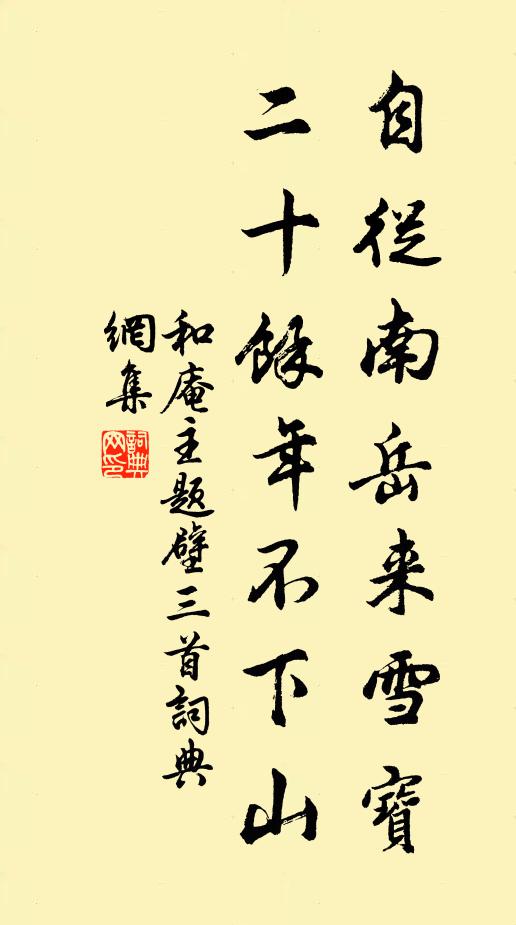 自從南岳来雪寶
二十餘年不下山
和庵主题壁三首詞典
網集
詞典网印